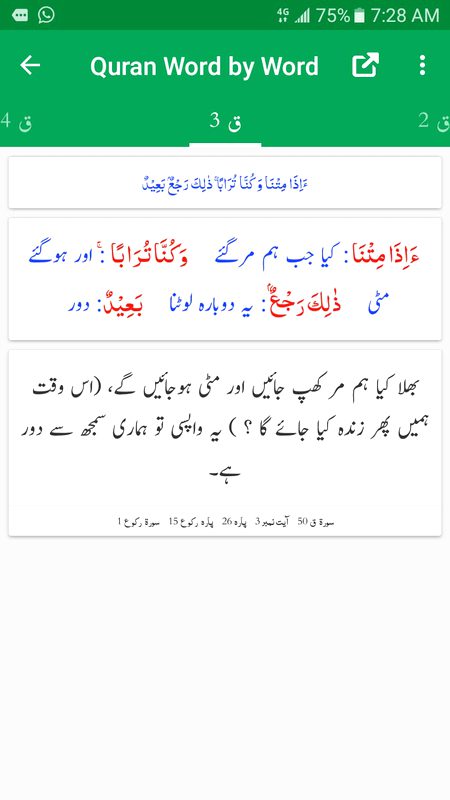 4G 75% 7:28 AM
Quran Word by Word
ق 2 ق 3 ق 4
ءَاِذَا مِتْنَا وَكُنَّا تُرَابًا ۚ ذٰلِكَ رَجْعٌۢ بَعِيْدٌ
ءَاِذَا مِتْنَا: کیا جب ہم مر گئے وَكُنَّا تُرَابًا ۚ: اور ہو گئے
مٹی ذٰلِكَ رَجْعٌۢ: یہ دوبارہ لوٹنا بَعِيْدٌ: دور
بھلا کیا ہم مر کھپ جائیں اور مٹی ہوجائیں گے، (اس وقت
ہمیں پھر زندہ کیا جائے گا ؟ ) یہ واپسی تو ہماری سمجھ سے دور
ہے۔
سورۃ ق 50 آیت نمبر 3 پارہ 26 پارہ رکوع 15 سورۃ رکوع 1